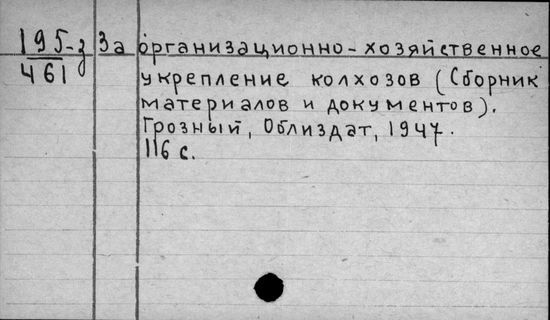 195-з За организационно-хозяйственное
461 укрепление колхозов (Сборник
материалов и документов).
Грозный, Облиздат, 1947.
116 с.